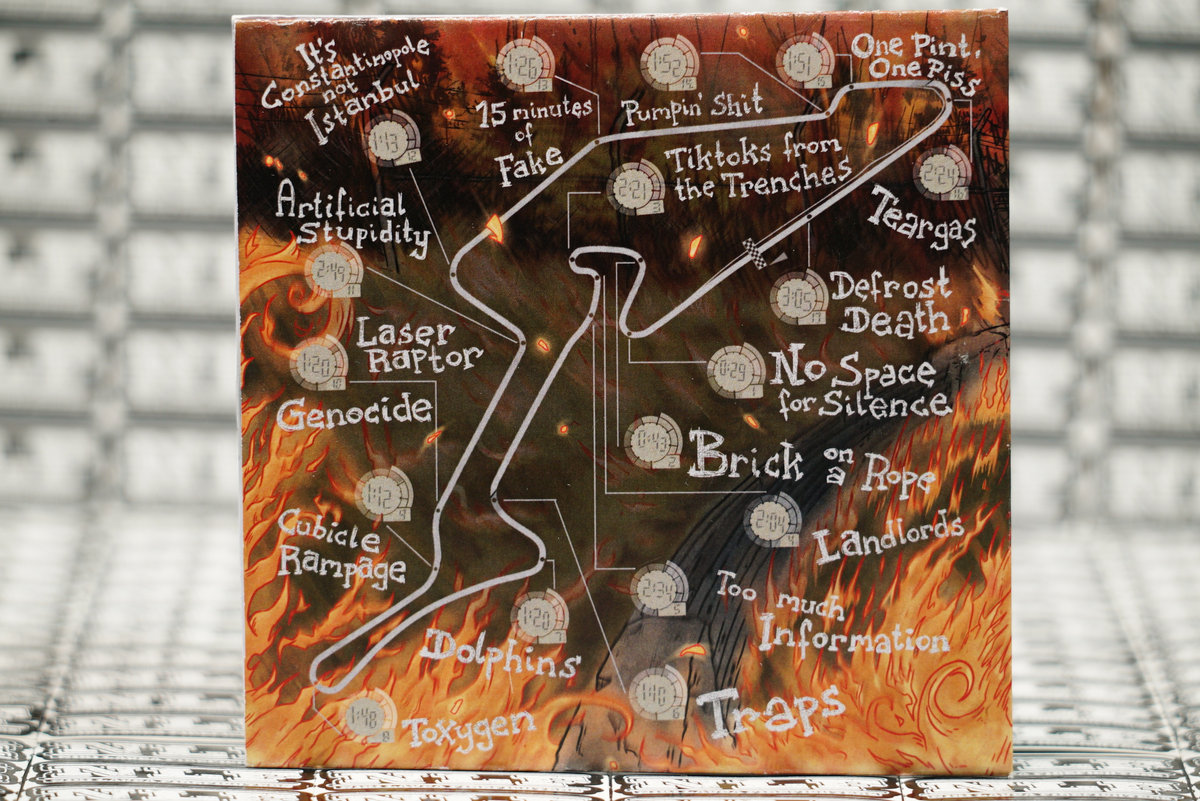 It's
Constantinopole
not
Istanbul
1:13
12
15 minutes
of
Fake
1:26
13
Pumpin' Shit
1:52
1:51
15
One Pint,
One Piss
Tiktoks from
the Trenches
2:21
3
2:24
16
Teargas
Artificial
Stupidity
2:49
11
3:05
17
Defrost
Death
Laser
Raptor
Genocide
1:20
10
0:29
1
No Space
for Silence
0:43
2
Brick on
a Rope
1:12
9
Cubicle
Rampage
2:04
4
Landlords
2:34
5
Too much
Information
1:20
7
Dolphins
1:40
6
Traps
1:48
8
Toxygen